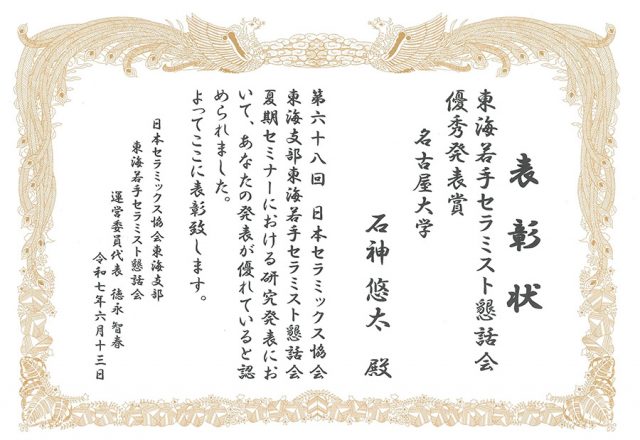 表彰状
東海若手セラミスト懇話会
優秀発表賞
名古屋大学
石神悠太 殿
第六十八回 日本セラミックス協会
東海支部東海若手セラミスト懇話会
夏期セミナーにおける研究発表にお
いて、あなたの発表が優れていると認
められました。
よってここに表彰致します。
日本セラミックス協会東海支部
東海若手セラミスト懇話会
運営委員代表 徳永智春
令和七年六月十三日